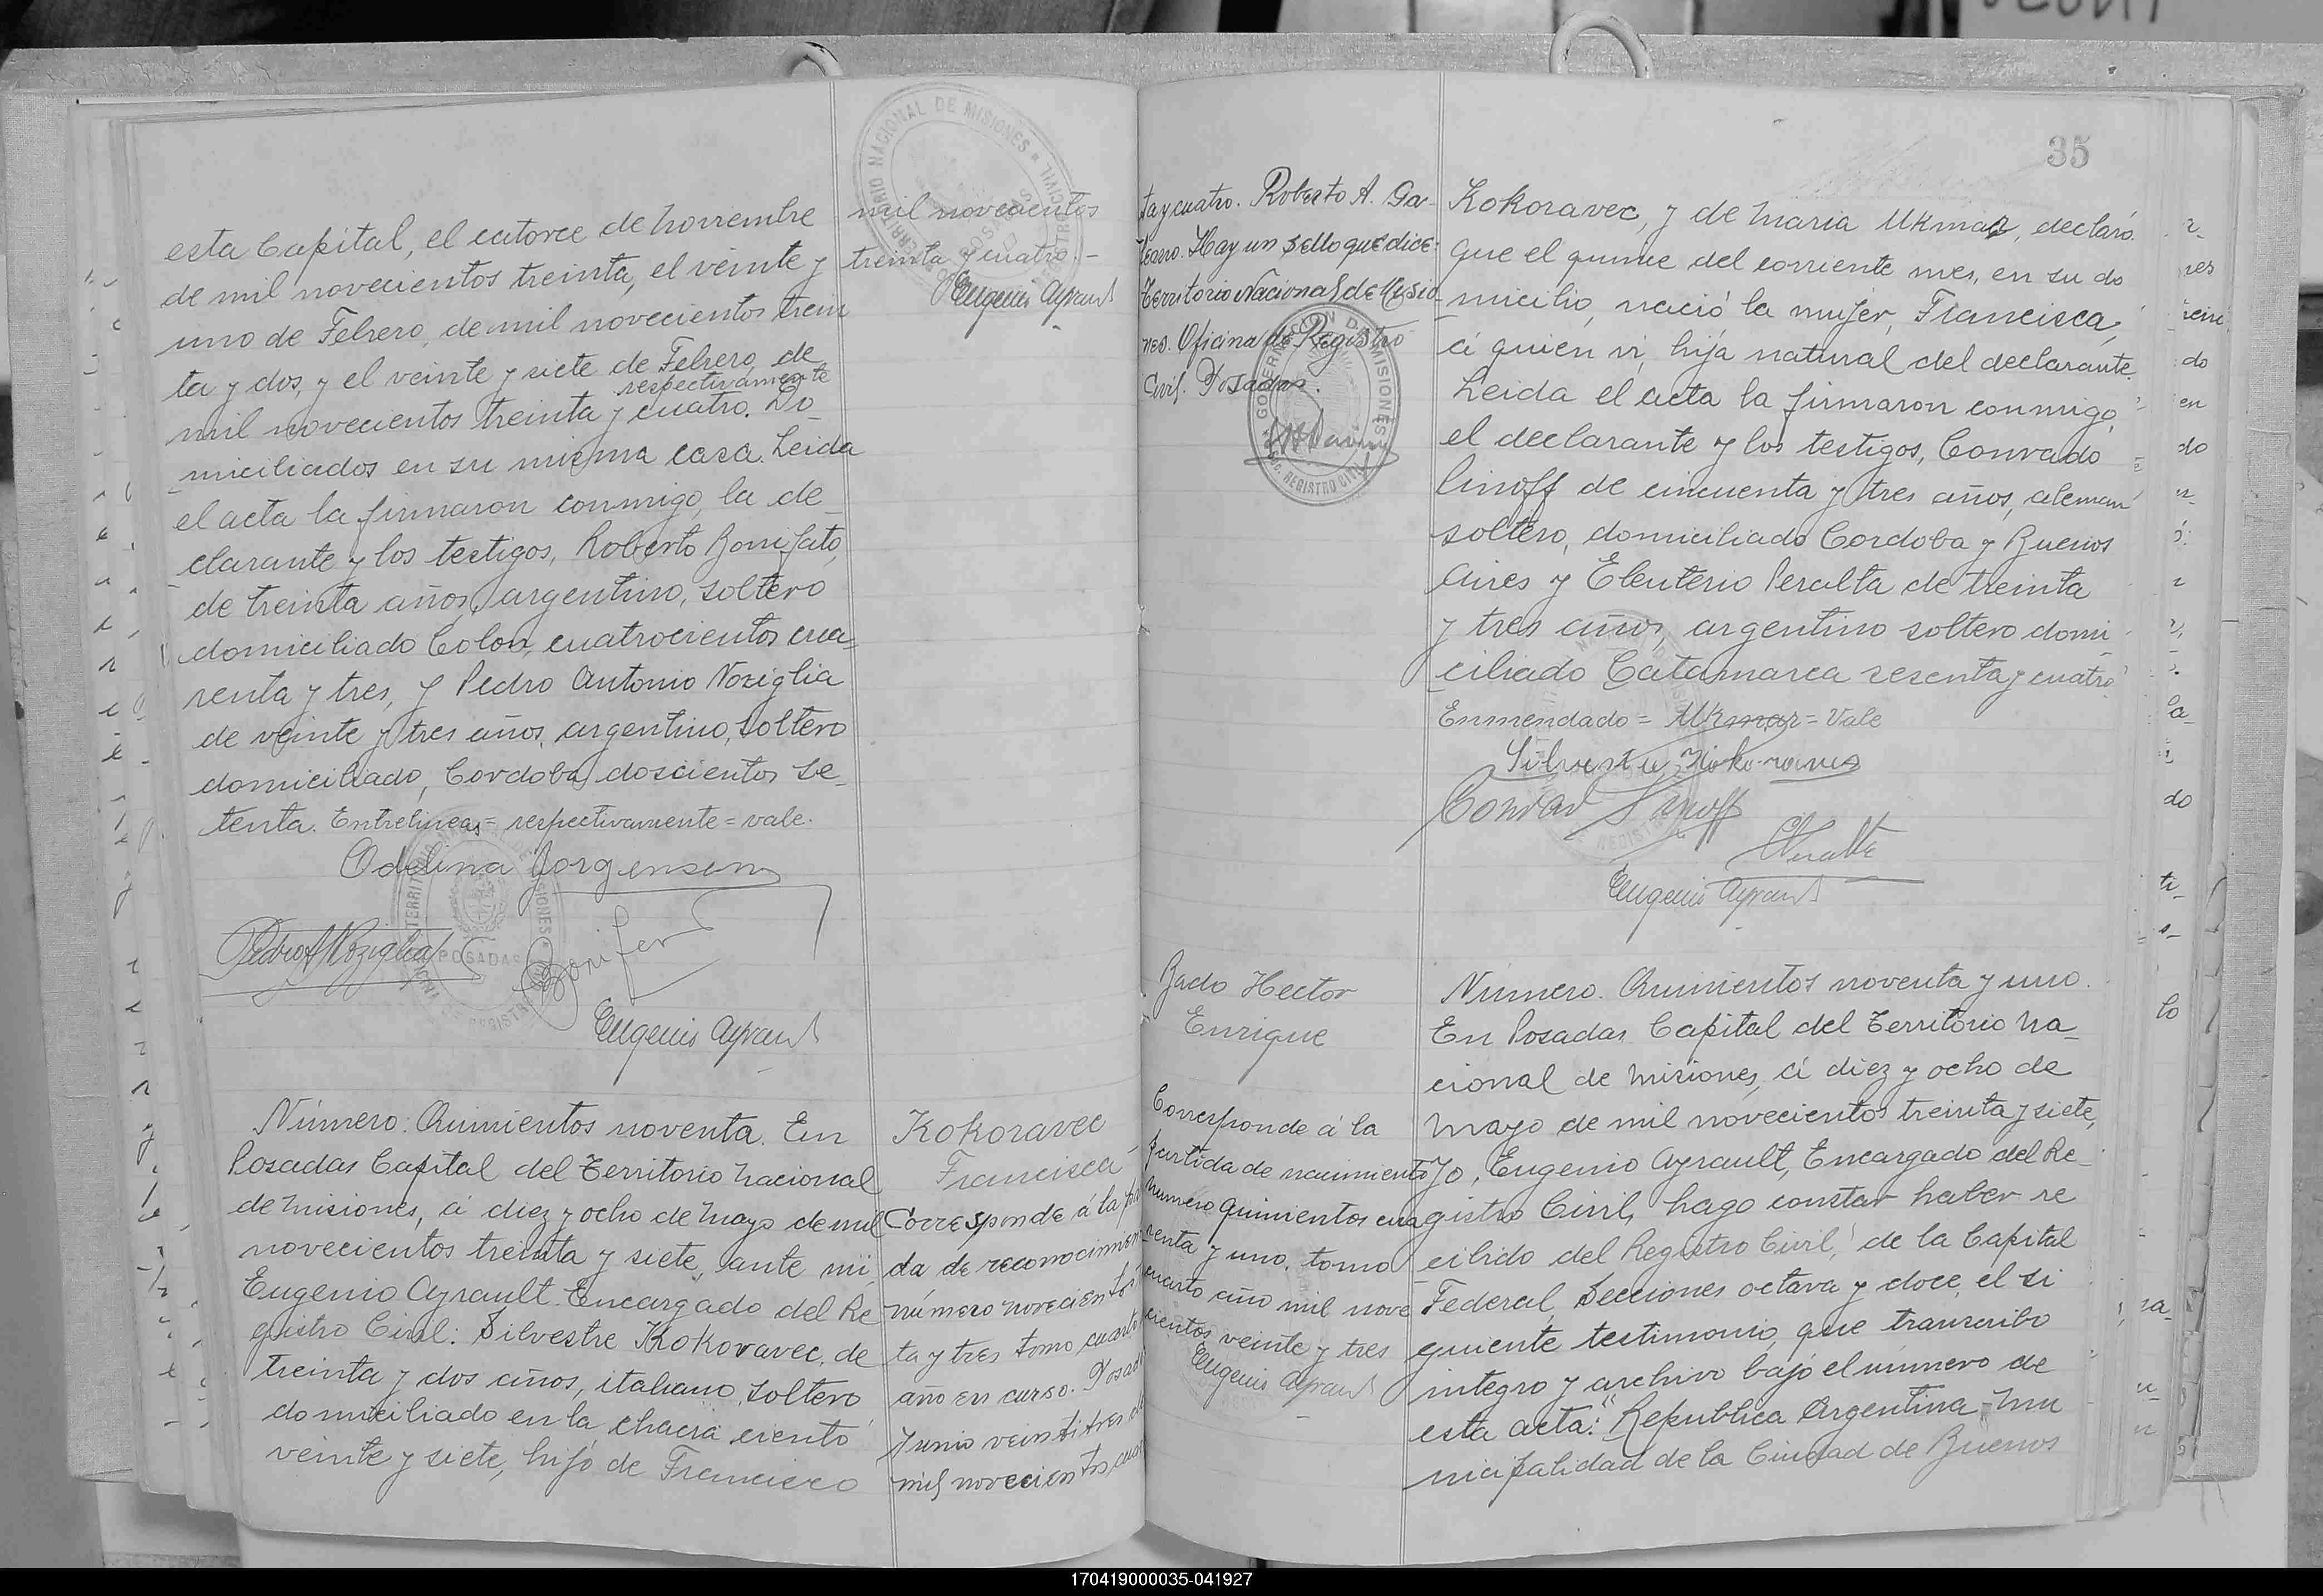 esta Capital, el catorce de Noviembre
de mil novecientos treinta, el veinte y
uno de Febrero, de mil novecientos trein
ta y dos, y el veinte y siete de Febrero, de
respectivamente
mil novecientos treinta y cuatro. Do_
_miciliados en su misma casa. Leida
el acta la firmaron conmigo, la de_
_clarante y los testigos, Roberto Bonifato,
de treinta años, argentino, soltero
domiciliado Colon, cuatrocientos cua_
renta y tres, y Pedro Antonio Noziglia
de veinte y tres años, argentino, soltero
domiciliado, Cordoba doscientos se_
tenta. Entrelineas = respectivamente = vale.
Odelina Jorgensen
Pedro A Noziglia
Eugenio Ayrault
mil novecientos
treinta y cuatro.-
Eugenio Ayrault
TERRITORIO NACIONAL DE MISIONES
REGISTRO CIVIL
POSADAS
Número: Quinientos noventa. En
Posadas Capital del Territorio Nacional
de Misiones, á diez y ocho de Mayo de mil
novecientos treinta y siete, ante mi
Eugenio Ayrault Encargado del Re
gistro Civil: Silvestre Kokoravec, de
treinta y dos años, italiano, soltero
domiciliado en la chacra ciento
veinte y siete, hijo de Francisco
Kokoravec
Francisca
Corresponde á la par
da de reconocimien
número novecientos
ta y tres tomo cuarto
año en curso. Posad
Junio veintitres
mil novecientos cua
35
ta y cuatro. Roberto A. Ga-
Hay un sello que dice:
Territorio Nacional de Misio_
nes. Oficina de Registro
Civil. Posadas.
GOBERNACION DE MISIONES
REGISTRO CIVIL
Kokoravec, y de Maria Ukmar, declaró
que el quince del corriente mes, en su do
_micilio, nació la mujer, Francisca,
á quien vi, hija natural del declarante.
Leida el acta la firmaron conmigo,
el declarante y los testigos, Conrado
Linoff de cincuenta y tres años, aleman
soltero, domiciliado Cordoba y Buenos
Aires y Eleuterio Peralta de treinta
y tres años, argentino soltero domi_
_ciliado Catamarca sesenta y cuatro
Enmendado = Ukmar = Vale
Silvestre Kokoravec
Conrad Linoff
EPeralta
Eugenio Ayrault
Hector
Enrique
Corresponde á la
partida de nacimiento
numero quinientos cua
renta y uno, tomo
cuarto año mil nove
cientos veinte y tres
Eugenio Ayrault
Número. Quinientos noventa y uno.
En Posadas Capital del Territorio Na_
cional de Misiones, á diez y ocho de
Mayo de mil novecientos treinta y siete,
Yo, Eugenio Ayrault, Encargado del Re_
gistro Civil, hago constar haber re
cibido del Registro Civil, de la Capital
Federal, Secciones octava y doce, el si
guiente testimonio, que transcribo
integro y archivo bajo el número de
esta acta: "Republica Argentina = Mu
nicipalidad de la Ciudad de Buenos
170419000035-041927